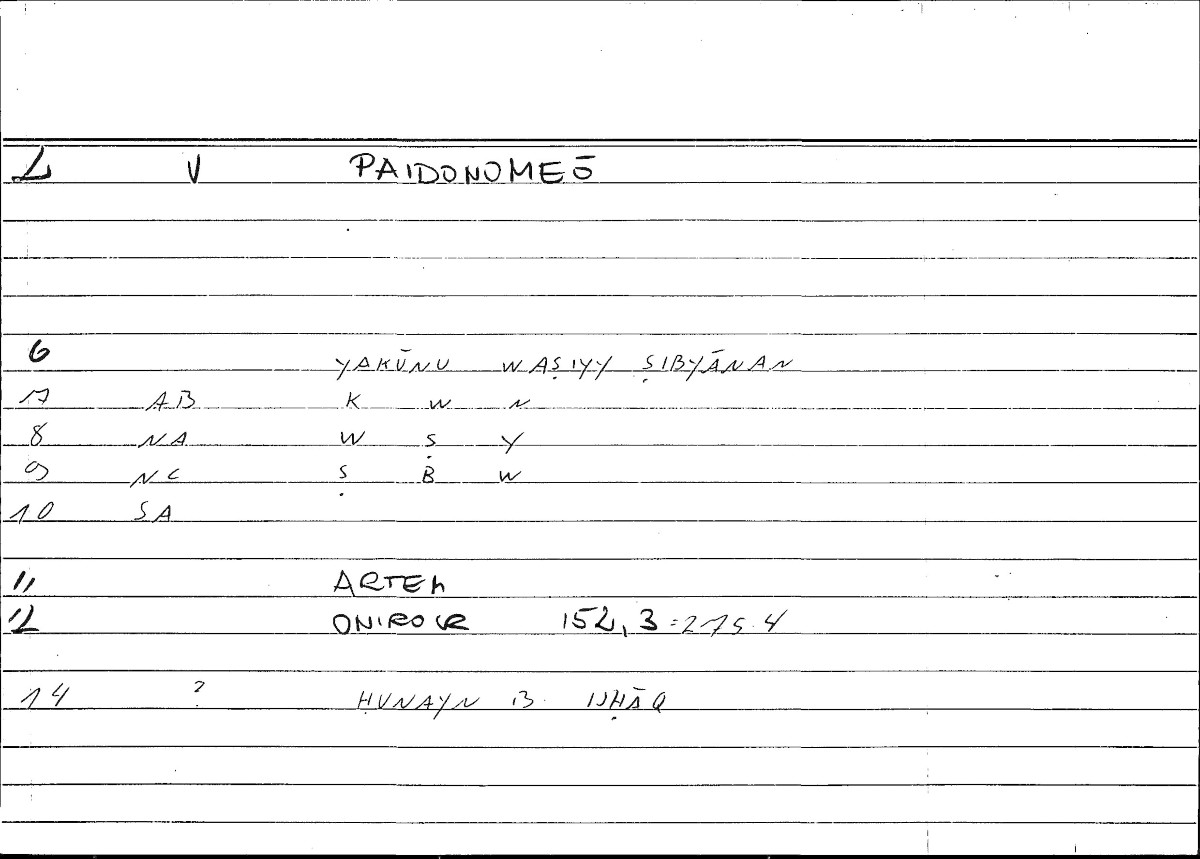 2 V PAIDONOMEŌ
6 YAKŪNU WAṢIYY ṢIBYĀNAN
7 AB K W N
8 NA W Ṣ Y
9 NC Ṣ B W
10 SA
11 ARTEM
12 ONIROCR 152,3=275.4
14 ? ḤUNAYN B. ISḤĀQ